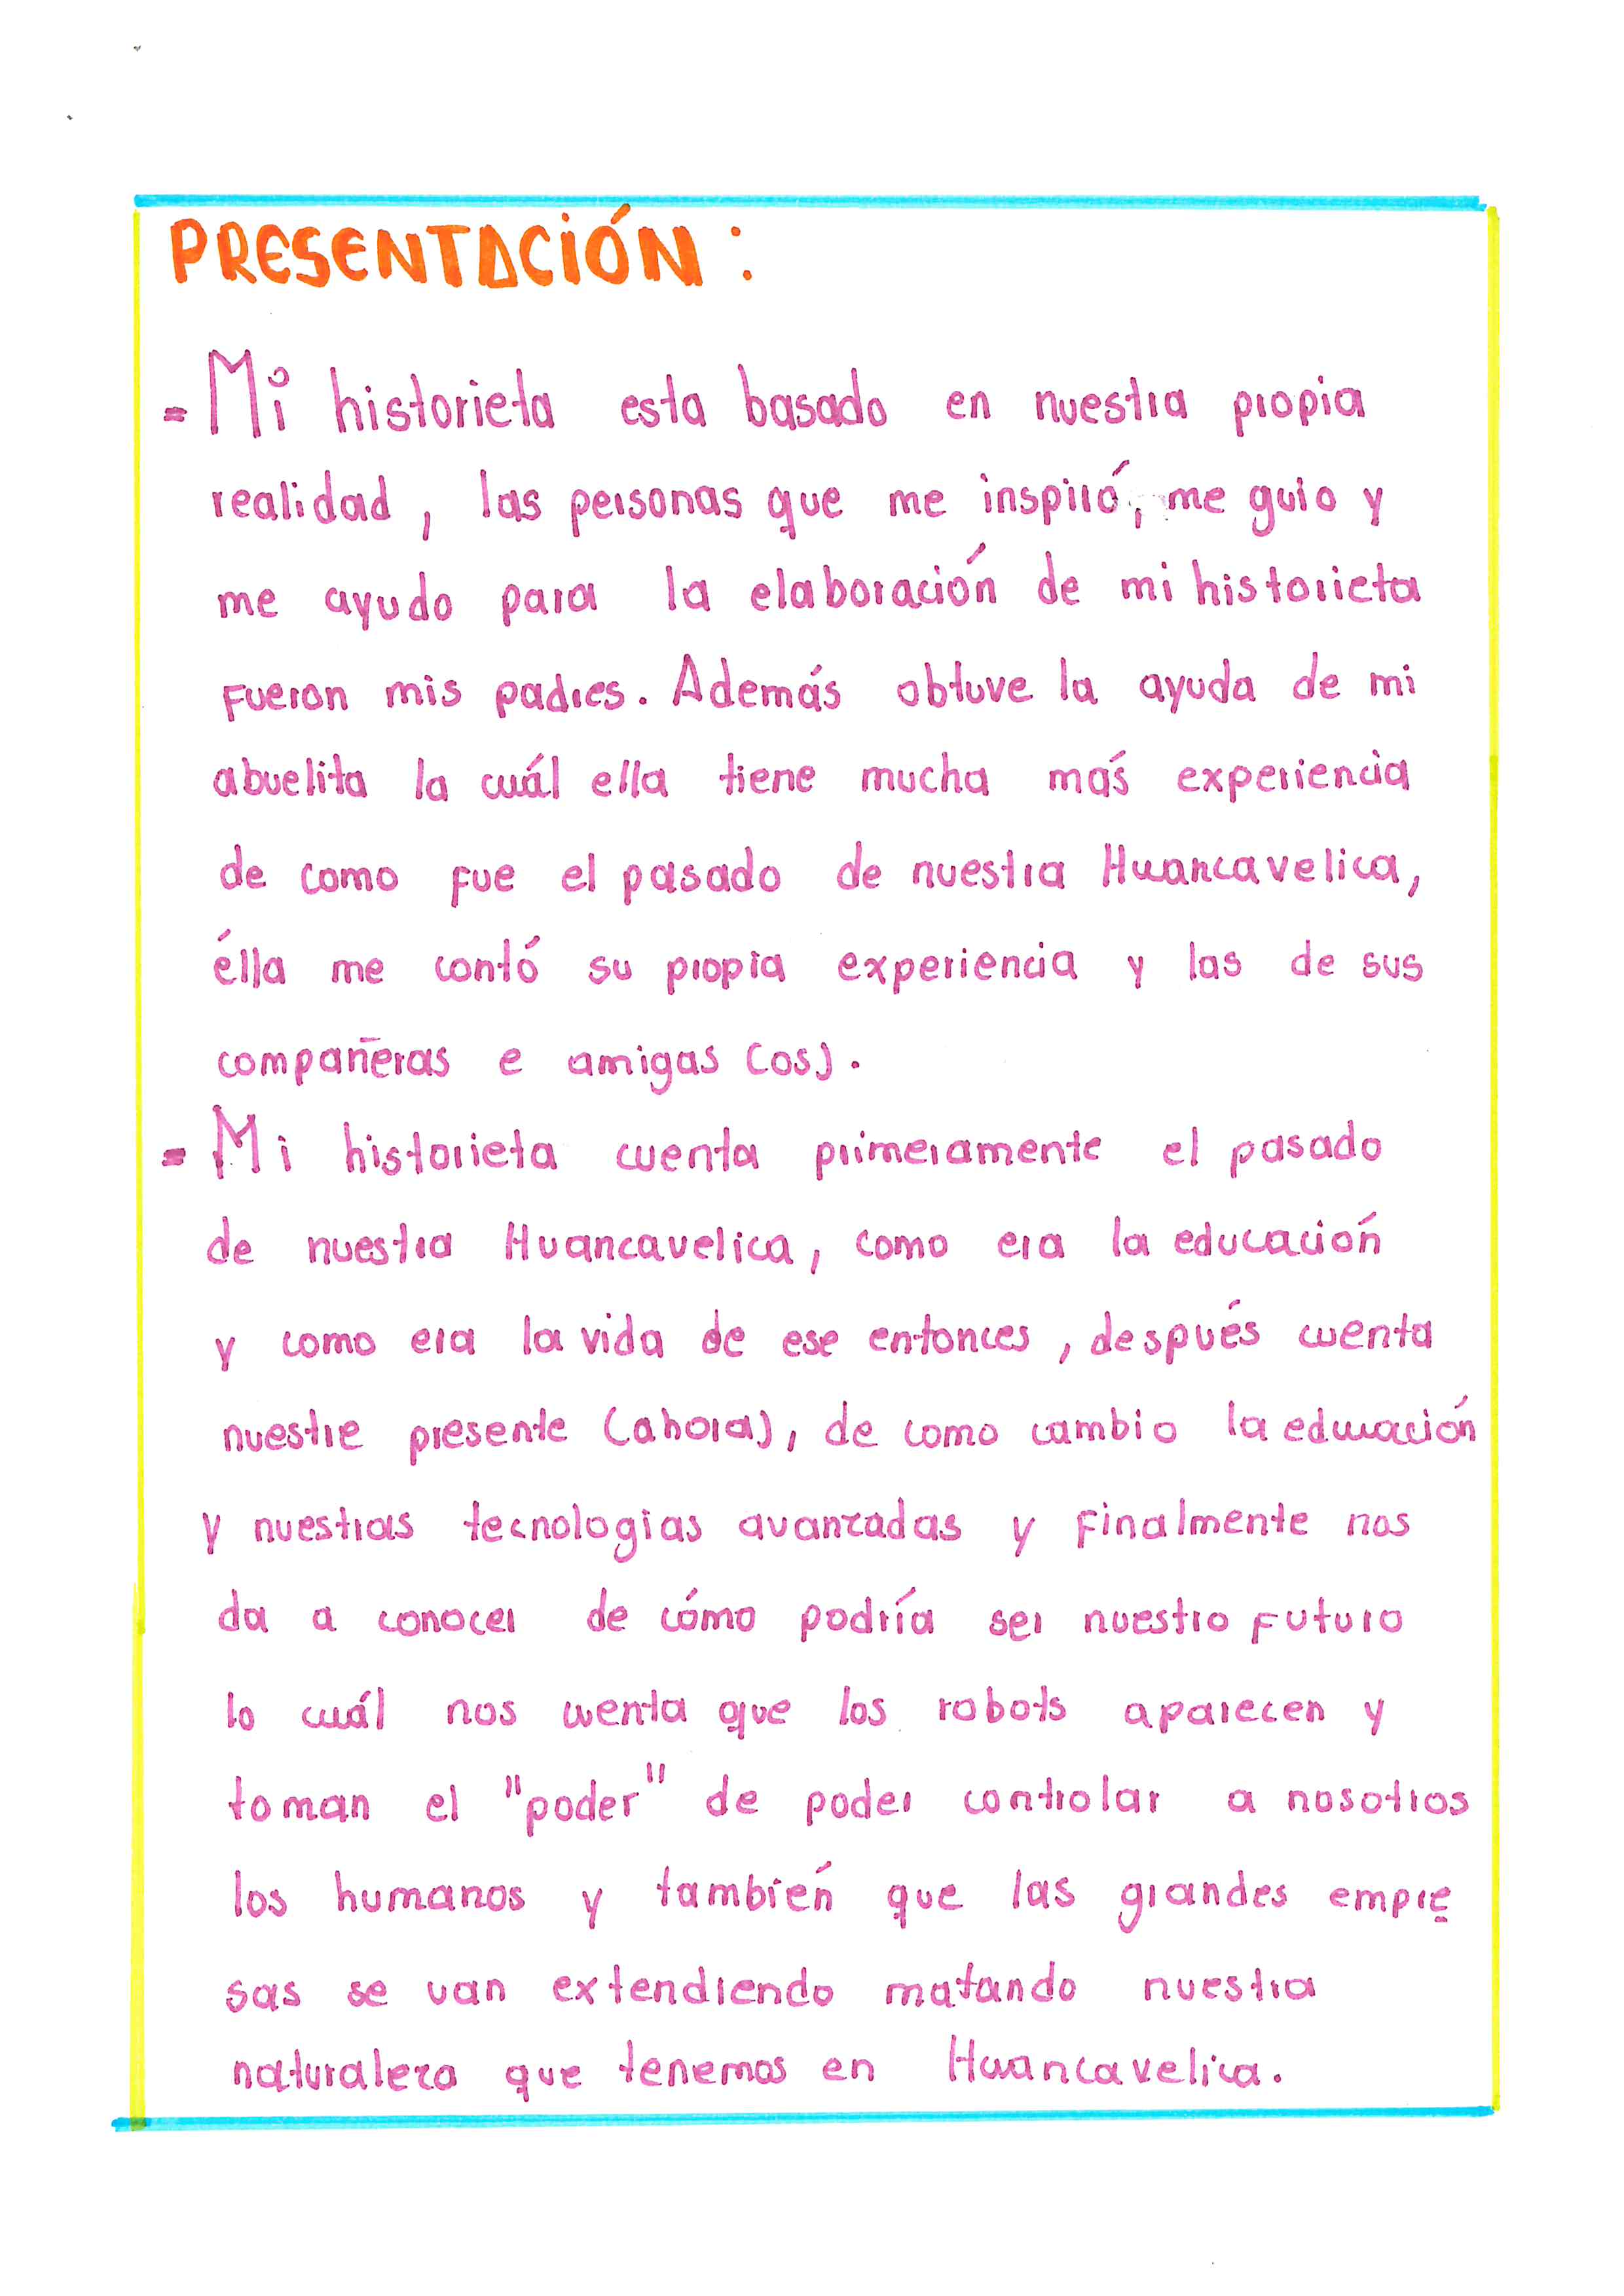 PRESENTACIÓN :
= Mi historieta esta basado en nuestra propia
realidad , las personas que me inspiró, me guio y
me ayudo para la elaboración de mi historieta
fueron mis padres. Además obtuve la ayuda de mi
abuelita la cuál ella tiene mucha más experiencia
de como fue el pasado de nuestra Huancavelica,
élla me contó su propia experiencia y las de sus
compañeras e amigas (os) .
= Mi historieta cuenta primeramente el pasado
de nuestra Huancavelica, como era la educación
y como era la vida de ese entonces , después cuenta
nuestre presente (ahora), de como cambio la educación
y nuestras tecnologias avanzadas y finalmente nos
da a conocer de cómo podría ser nuestro futuro
lo cuál nos cuenta que los robots aparecen y
toman el "poder" de poder controlar a nosotros
los humanos y también que las grandes empre
sas se van extendiendo matando nuestra
naturaleza que tenemos en Huancavelica.